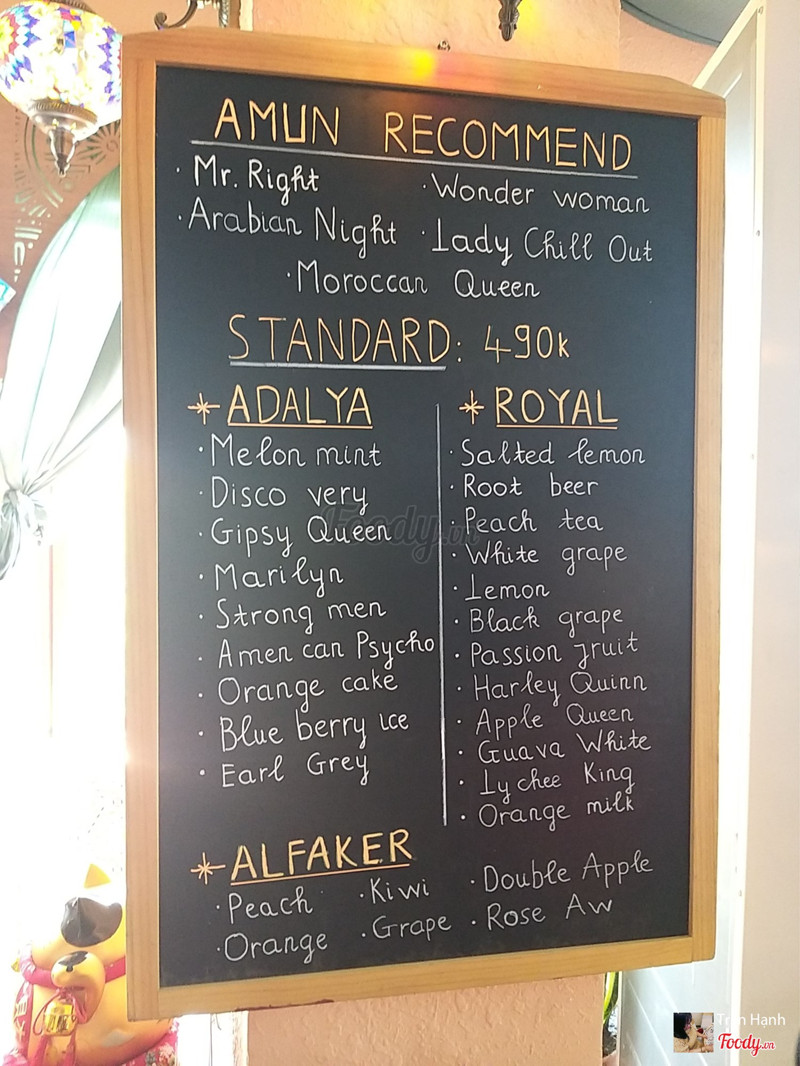 AMUN RECOMMEND
· Mr. Right
· Wonder woman
· Arabian Night
· Lady Chill Out
· Moroccan Queen
STANDARD: 490k
* ADALYA
· Melon mint
· Disco very
· Gipsy Queen
· Marilyn
· Strong men
· Amen can Psycho
· Orange cake
· Blue berry ice
· Earl Grey
* ROYAL
· Salted lemon
· Root beer
· Peach tea
· White grape
· Lemon
· Black grape
· Passion fruit
· Harley Quinn
· Apple Queen
· Guava White
· Lychee King
· Orange milk
* ALFAKER
· Peach
· Kiwi
· Double Apple
· Orange
· Grape
· Rose Aw
Foody.vn
Trần Hạnh
Foody.vn